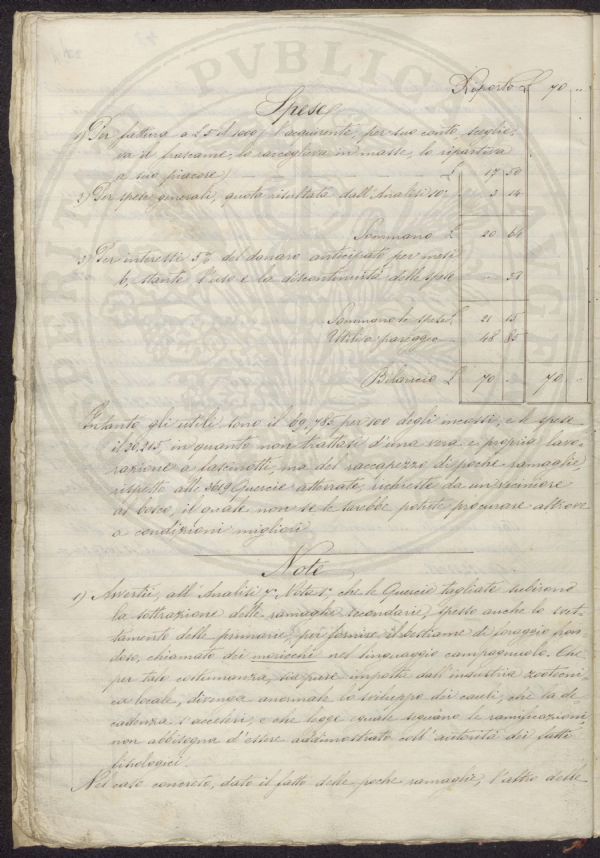 Riporto £ 70 „
Spese
1) Per fattura a £ 5 il 1000; l'acquirente, per suo conto, sceglie,
va il frascame, lo raccoglieva in masse, lo ripartiva
a suo piacere) £ 17 50
2) Per spese generali, quota risultata dall'Analisi 10ª „ 3 14
Sommano £ 20 64
3) Per interessi 5% del danaro anticipato per mesi
6, stante l'uso e la discontinuità delle spese „
Sommano le spese £ 21 15
Utile a pareggio „ 48 85
Bilancio £ 70 „ 70 „
Intanto gli utili sono il 69,785 per 100 degli incassi, e le spese
il 30,215, in quanto non trattasi d'una vera e propria lavo-
razione a fascinotti, ma del raccapezzo di poche ramaglie,
rispetto alle 3619 Quercie atterrate, richieste da un viciniore
al bosco, il quale non se le sarebbe potute procurare altrove
a condizioni migliori.
Note
1) Avvertii, all'Analisi Nota 1ª, che le Quercie tagliate subirono
la sottrazione delle ramaglie secondarie, spesso anche lo svet-
tamento delle primarie, per fornire il bestiame di foraggio fron-
doso, chiamato dei nel linguaggio campagnuolo. Che
per tale costumanza, sia pure imposta dall'industria zootecni-
ca locale, divenga anormale lo sviluppo dei cauli, che la de-
cadenza s'acceleri, e che legge eguale seguano le ramificazioni
non abbisogna d'essere addimostrato coll'autorità dei fatti
fitologici.
Nel caso concreto, dato il fatto delle poche ramaglie, l'altro delle